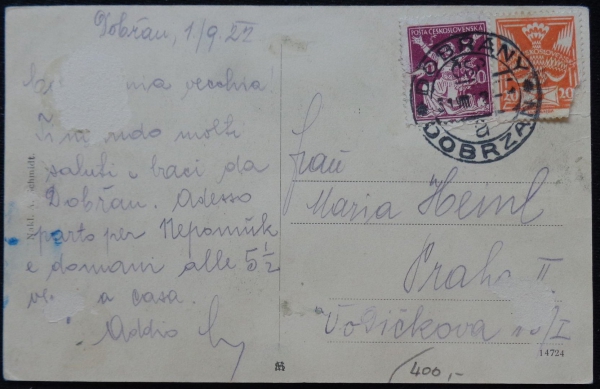 Dobřan, 1/9. 22
mia vecchia!
Ti mando molti
saluti e baci da
Dobřan. Adesso
parto per Nepomuk
e domani alle 5½
a casa.
Addio
POŠTA ČESKOSLOVENSKÁ
20
20
20
DOBŘANY
DOBRZAN
Frau
Maria Heml
Praha II.
Vodičkova
14724
400,-